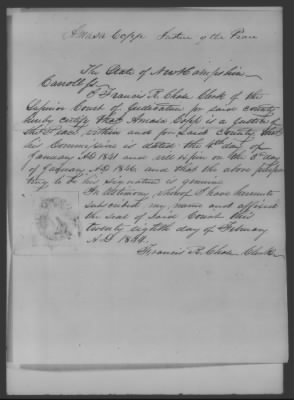 Amasa Copp Justice of the Peace
The State of New Hampshire
Carroll ss.
I Francis R. Chase Clerk of the
Superior Court of Judicature for said county
hereby certify that Amasa Copp is a Justice of
the Peace, within and for said County, that
his Commission is dated the 4th day of
January AD 1841 and will expire on the 3d day
of January AD 1846 and that the above
to be his signature is genuine
In testimony whereof I have hereunto
subscribed my name and affixed
the seal of said Court this
twenty eighth day of February
A.D 1844.
Francis R. Chase Clerk